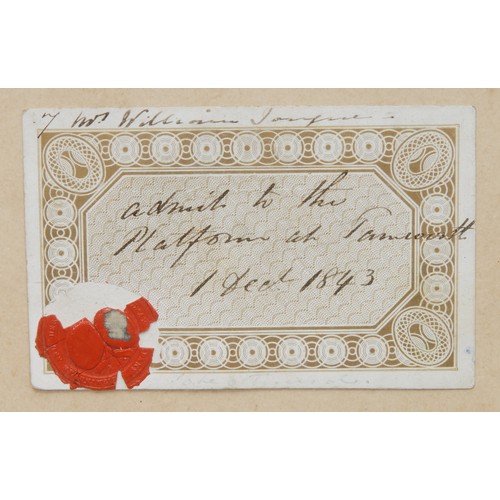 7 Mrs William Tongue
admit to the
Platform at Tamworth
1 Decr 1843